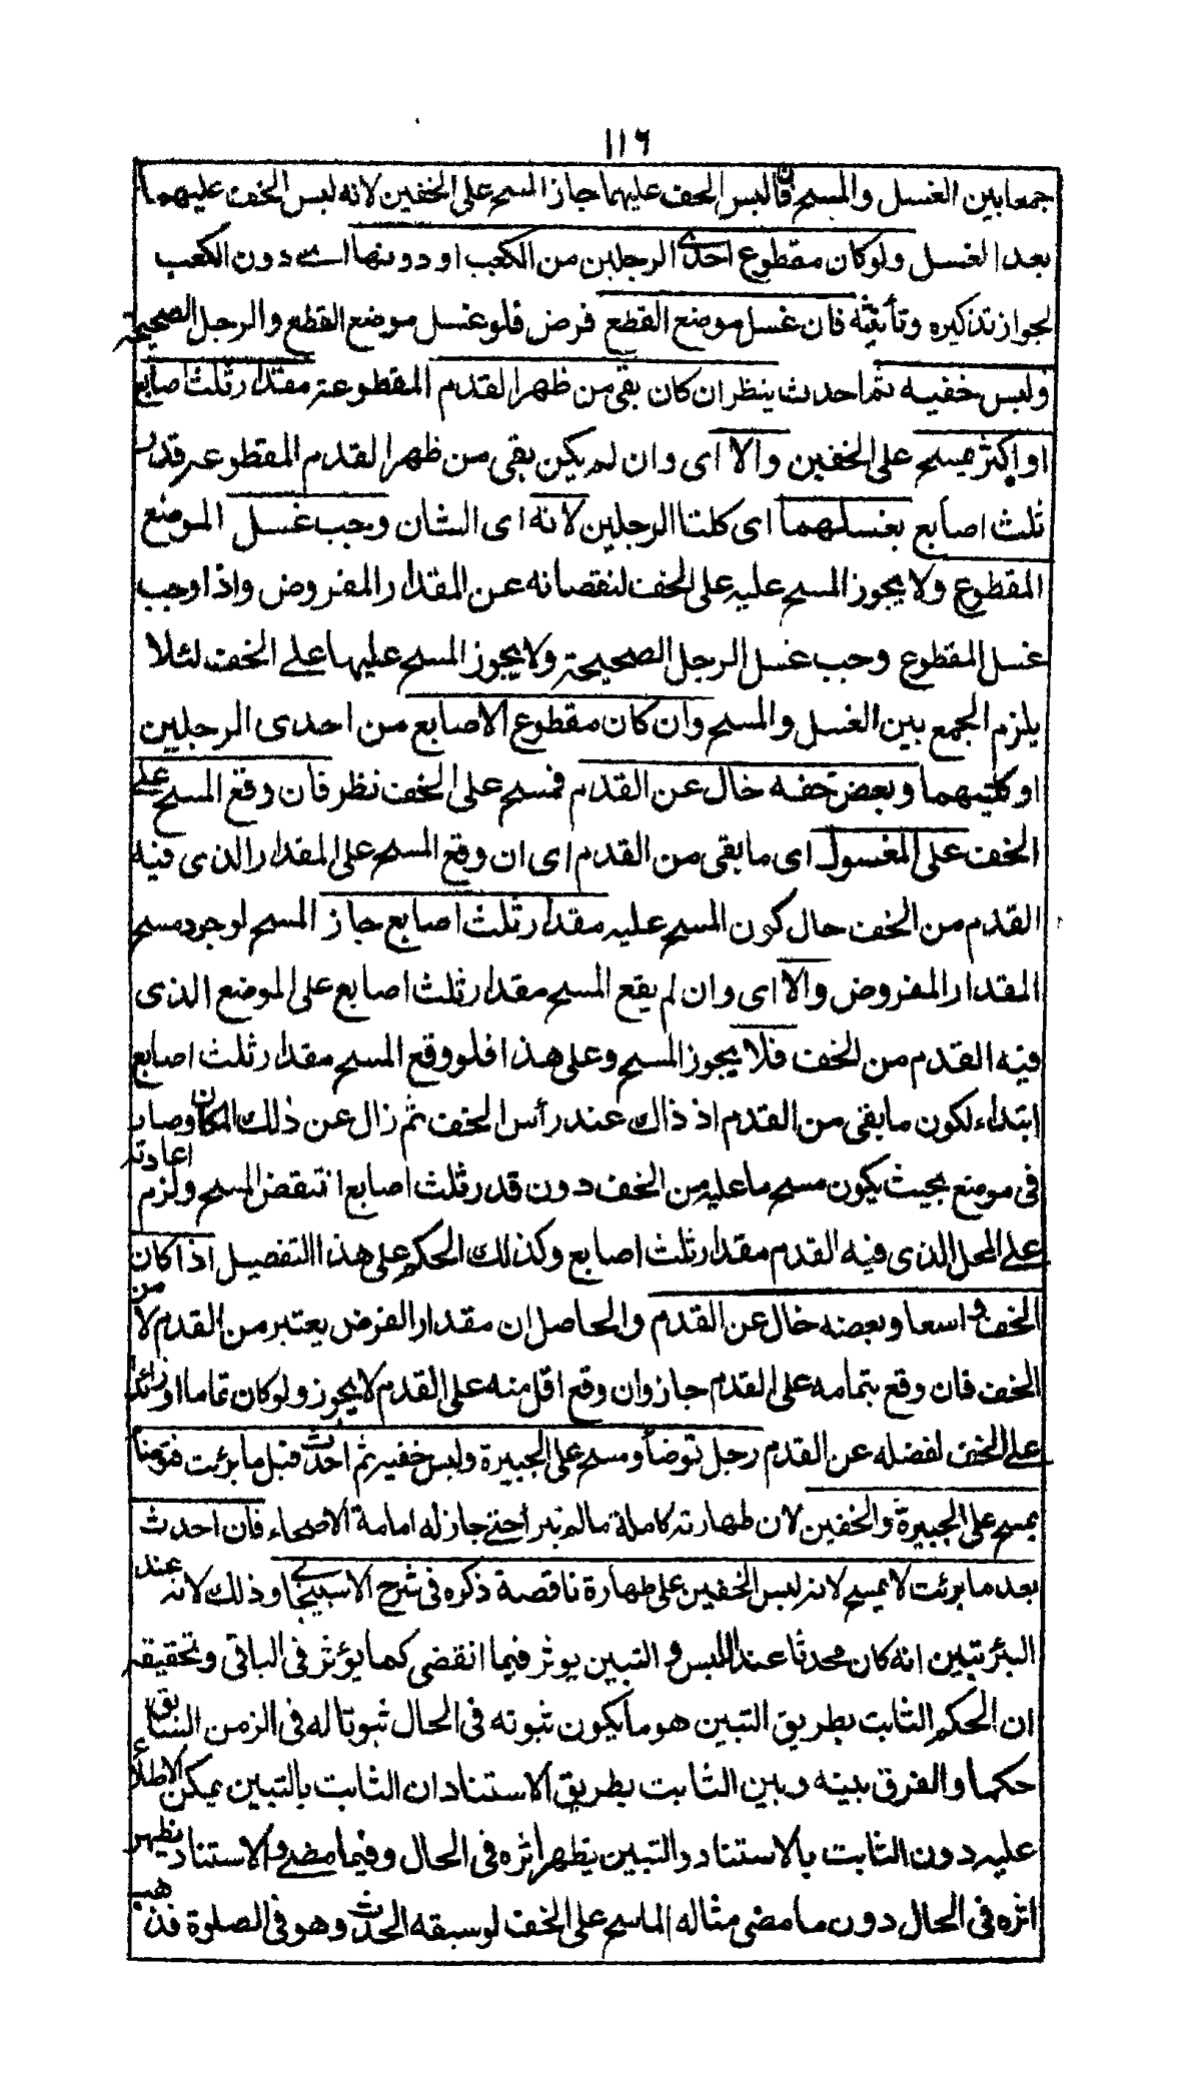 ١١٦
جمعا بين الغسل والمسح فان لبس الخف عليهما جاز المسح على الخفين لانه لبس الخف عليهما
بعد الغسل ولو كان مقطوع احدى الرجلين من الكعب او دونها اى دون الكعب
لجواز تذكيره وتأنيثه فان غسل موضع القطع فرض فلو غسل موضع القطع والرجل الصحيحة
ولبس خفيه ثم احدث ينظر ان كان بقى من ظهر القدم المقطوعة مقدار ثلث اصابع
او اكثر يمسح على الخفين والا اى وان لم يكن بقى من ظهر القدم المقطوعة قدر
ثلث اصابع بغسلهما اى كلتا الرجلين لانه اى الشان وجب غسل الموضع
المقطوع ولا يجوز المسح عليه على الخف لنقصانه عن المقدار المفروض واذا وجب
غسل المقطوع وجب غسل الرجل الصحيحة ولا يجوز المسح عليها على الخف لئلا
يلزم الجمع بين الغسل والمسح وان كان مقطوع الاصابع من احدى الرجلين
او كلتيهما وبعض خفه خال عن القدم فمسح على الخف نظر فان وقع المسح على
الخف على المغسول اى ما بقى من القدم اى ان وقع المسح على المقدار الذى فيه
القدم من الخف حال كون المسح عليه مقدار ثلث اصابع جاز المسح لوجود مسح
المقدار المفروض والا اى وان لم يقع المسح مقدار ثلث اصابع على الموضع الذى
فيه القدم من الخف فلا يجوز المسح وعلى هذا فلو وقع المسح مقدار ثلث اصابع
ابتداء لكون ما بقى من القدم اذ ذاك عند رأس الخف ثم زال عن ذلك المكان وصار
فى موضع بحيث يكون مسح ما عليه من الخف دون قدر ثلث اصابع انتقض المسح ولزم اعادته
على المحل الذى فيه القدم مقدار ثلث اصابع وكذلك الحكم على هذا التفصيل اذا كان
الخف واسعا وبعضه خال عن القدم والحاصل ان مقدار الفرض يعتبر من القدم لا من
الخف فان وقع بتمامه على القدم جاز وان وقع اقل منه على القدم لا يجوز ولو كان تماما او زائدا
على الخف لفضله عن القدم رجل توضأ ومسح على الجبيرة ولبس خفيه ثم احدث قبل ما برئت فتوضأ
يمسح على الجبيرة والخفين لان طهارته كاملة ما لم تبرأ حتى جاز له امامة الاصحاء فان احدث
بعد ما برئت لا يمسح لانه لبس الخفين على طهارة ناقصة ذكره فى شرح الاسبيجابى وذلك لانه عند
البرء تبين انه كان محدثا عند اللبس و التبين يوثر فيما انقضى كما يؤثر فى الباقى وتحقيقه
ان الحكم الثابت بطريق التبين هو ما يكون ثبوته فى الحال ثبوتا له فى الزمن السابق
حكما والفرق بينه وبين الثابت بطريق الاستناد ان الثابت بالتبين يمكن الاطلاع
عليه دون الثابت بالاستناد والتبين يظهر اثره فى الحال وفيما مضى والاستناد يظهر
اثره فى الحال دون ما مضى مثاله الماسح على الخف لو سبقه الحدث وهو فى الصلوة فذهب